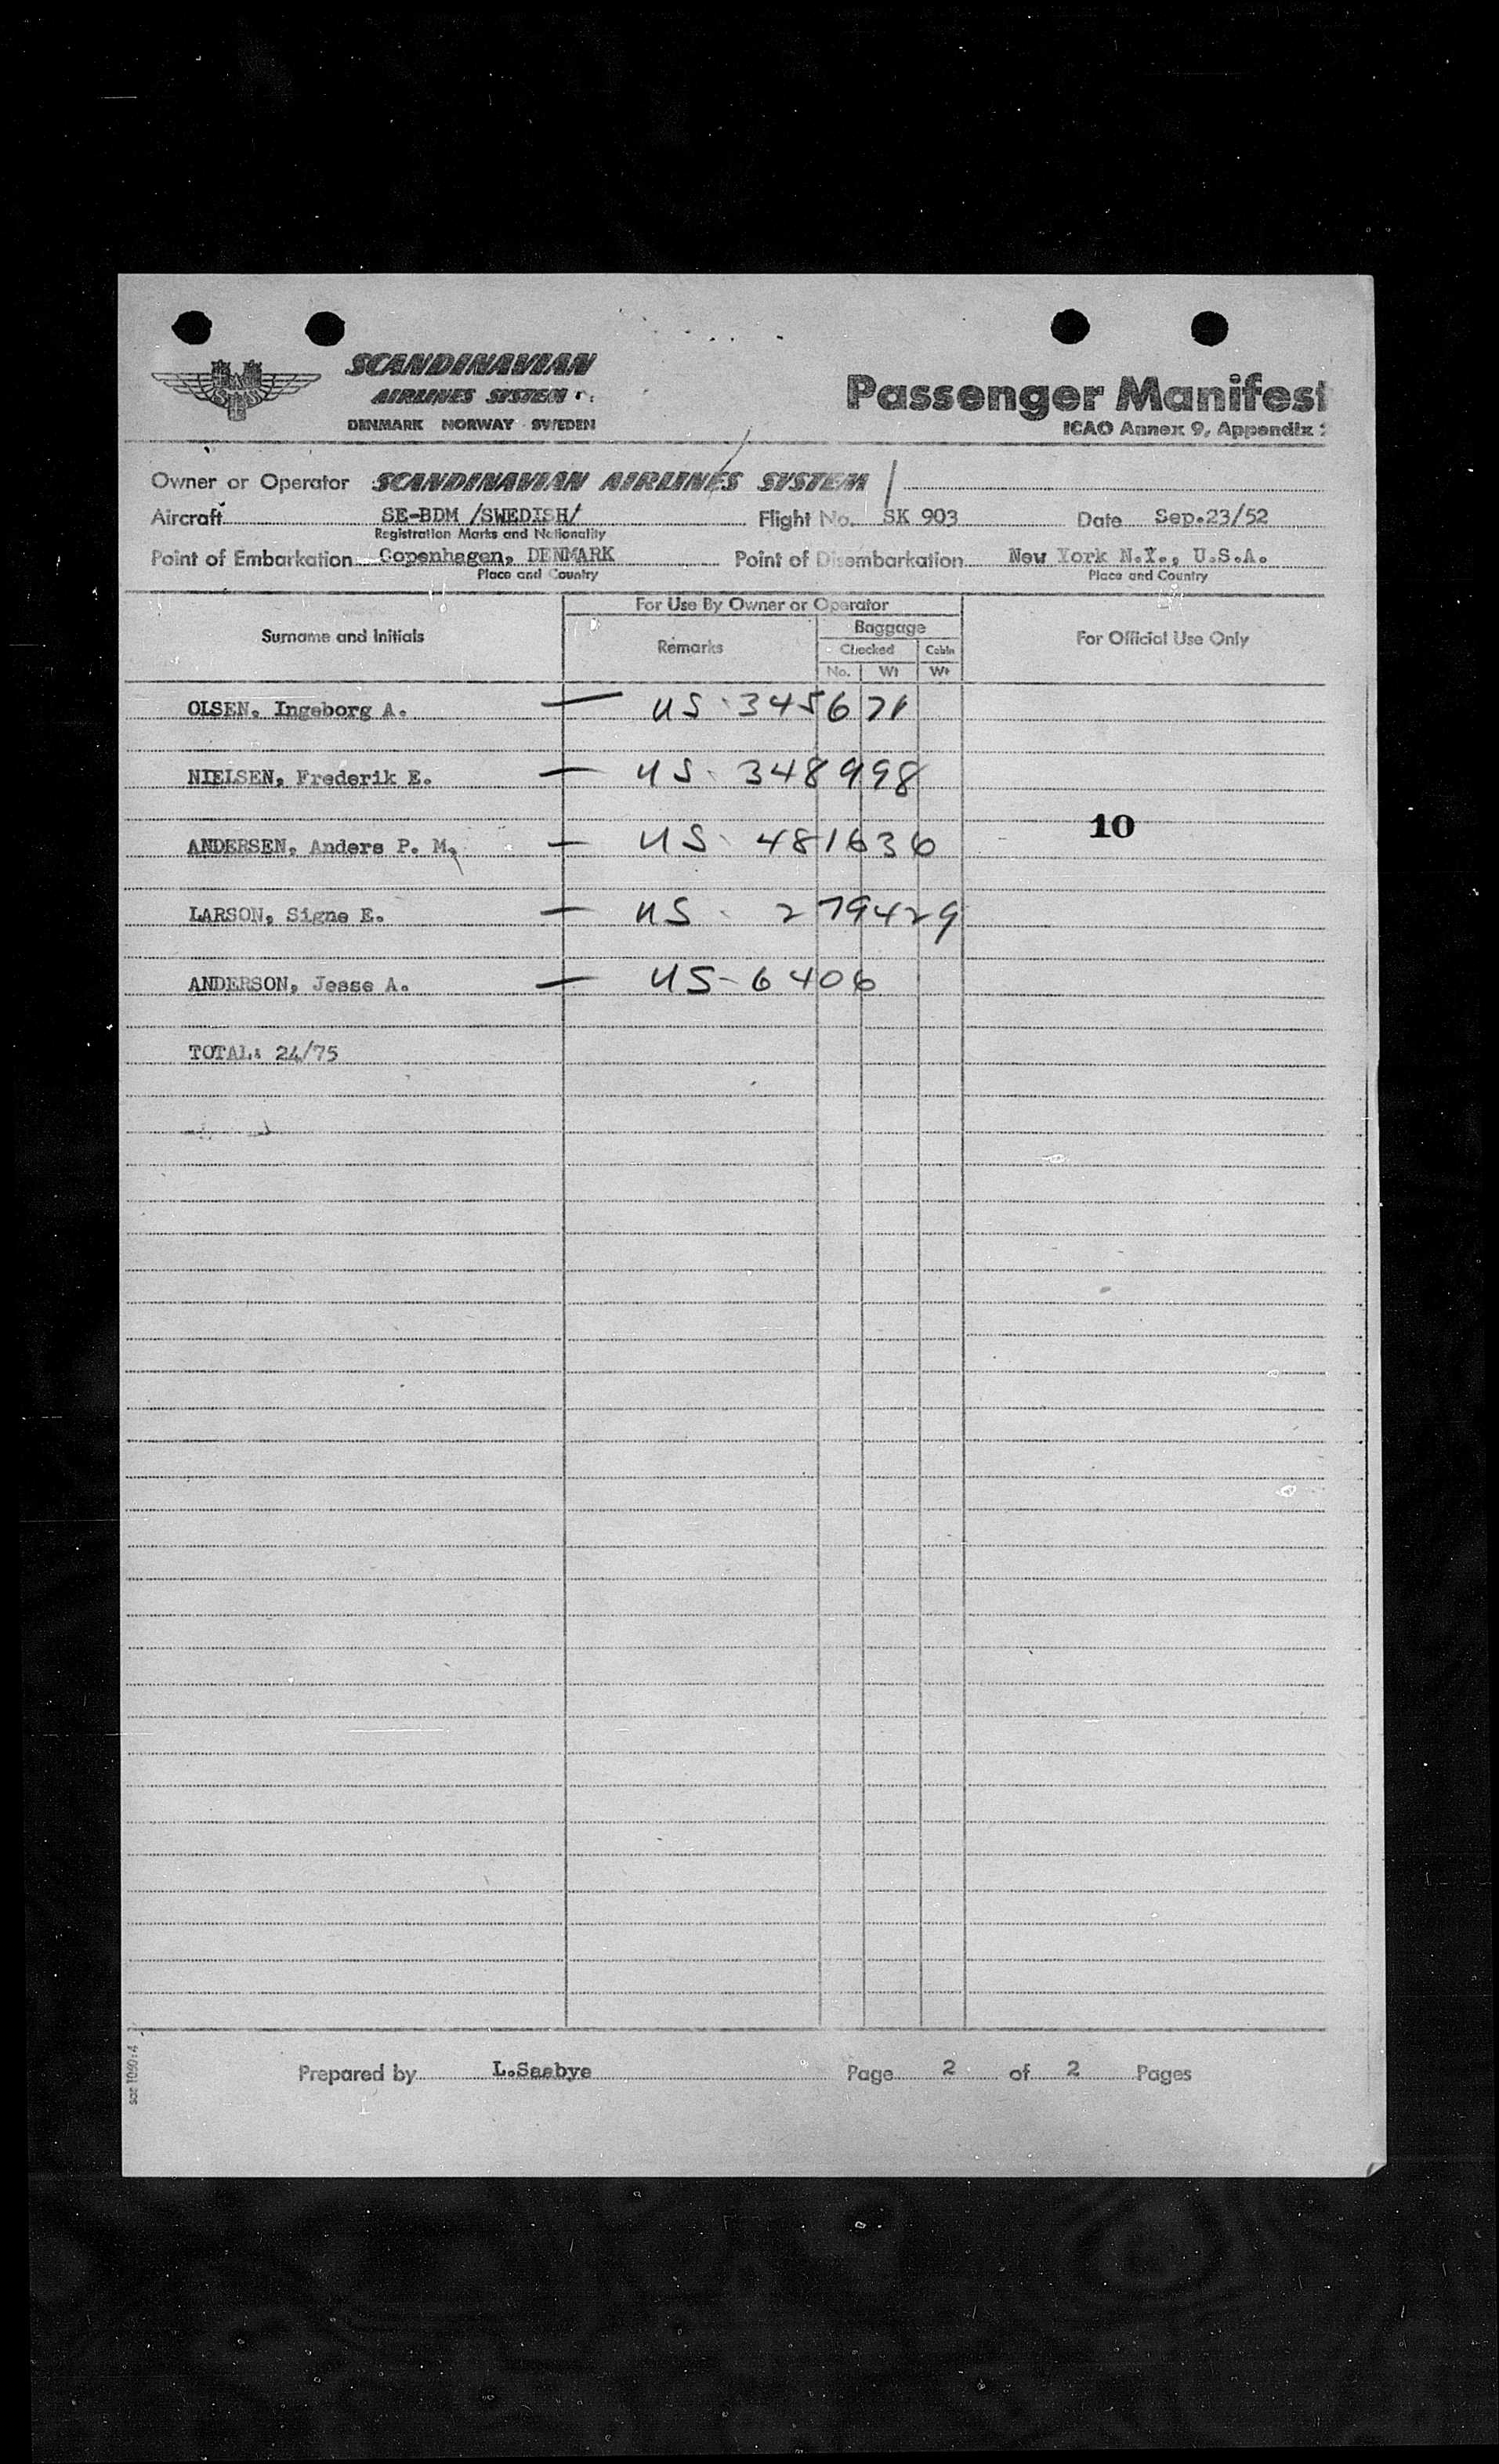 SCANDINAVIAN
AIRLINES SYSTEM
DENMARK NORWAY SWEDEN
Passenger Manifest
ICAO Annex 9, Appendix
Owner or Operator SCANDINAVIAN AIRLINES SYSTEM
Aircraft SE-BDM /SWEDISH/ Flight No. SK 903 Date Sep.23/52
Registration Marks and Nationality
Point of Embarkation Copenhagen, DENMARK Point of Disembarkation New York N.Y., U.S.A.
Place and Country Place and Country
For Use By Owner or Operator
Surname and Initials Remarks Baggage For Official Use Only
Checked Cabin
No. Wt Wt
OLSEN, Ingeborg A. — US. 345671
NIELSEN, Frederik E. — US. 348998
10
ANDERSEN, Anders P. M. — US. 481636
LARSON, Signe E. — US. 279429
ANDERSON, Jesse A. — US-6406
TOTAL: 24/75
Prepared by L.Saabye Page 2 of 2 Pages